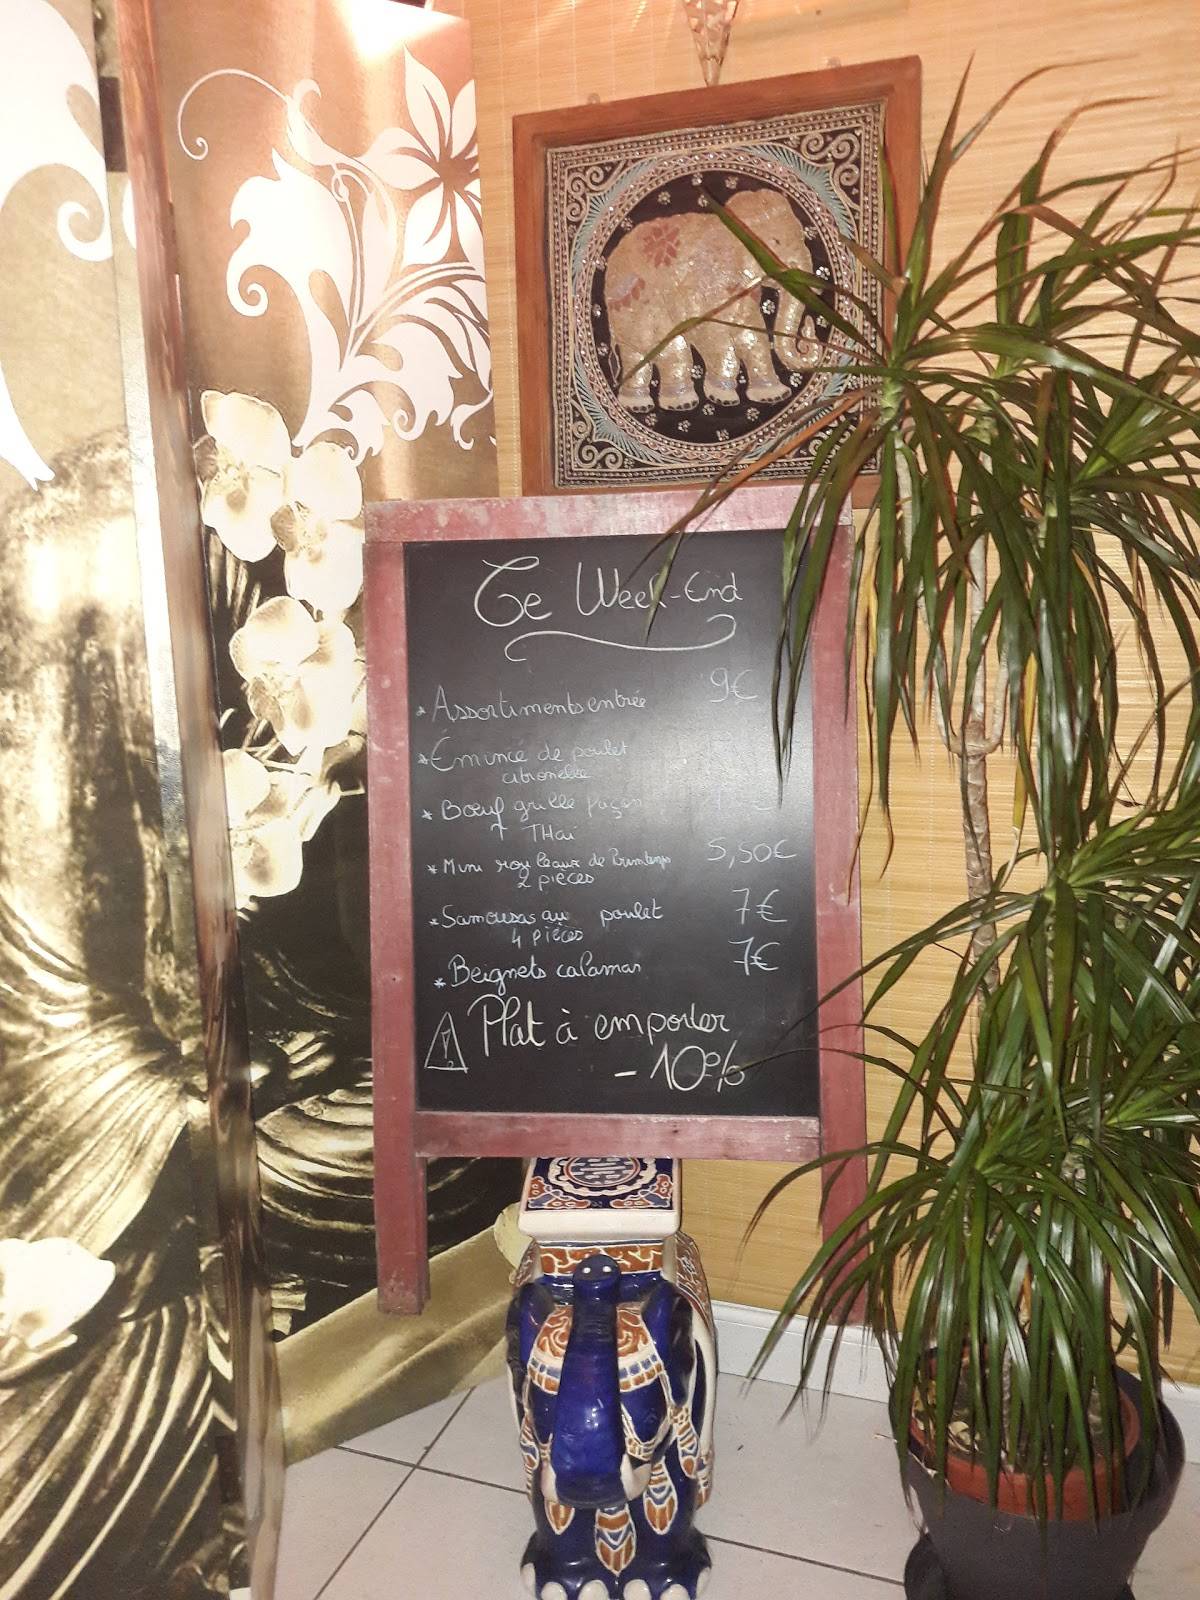 Ce Week-End
* Assortiments entrée 9€
* Émincé de poulet
citronelle
* Bœuf grillé façon
THaï
* Mini rouleaux de Printemps 5,50€
2 pièces
* Samousas au poulet 7€
4 pièces
* Beignets calamar 7€
! Plat à emporter
- 10%